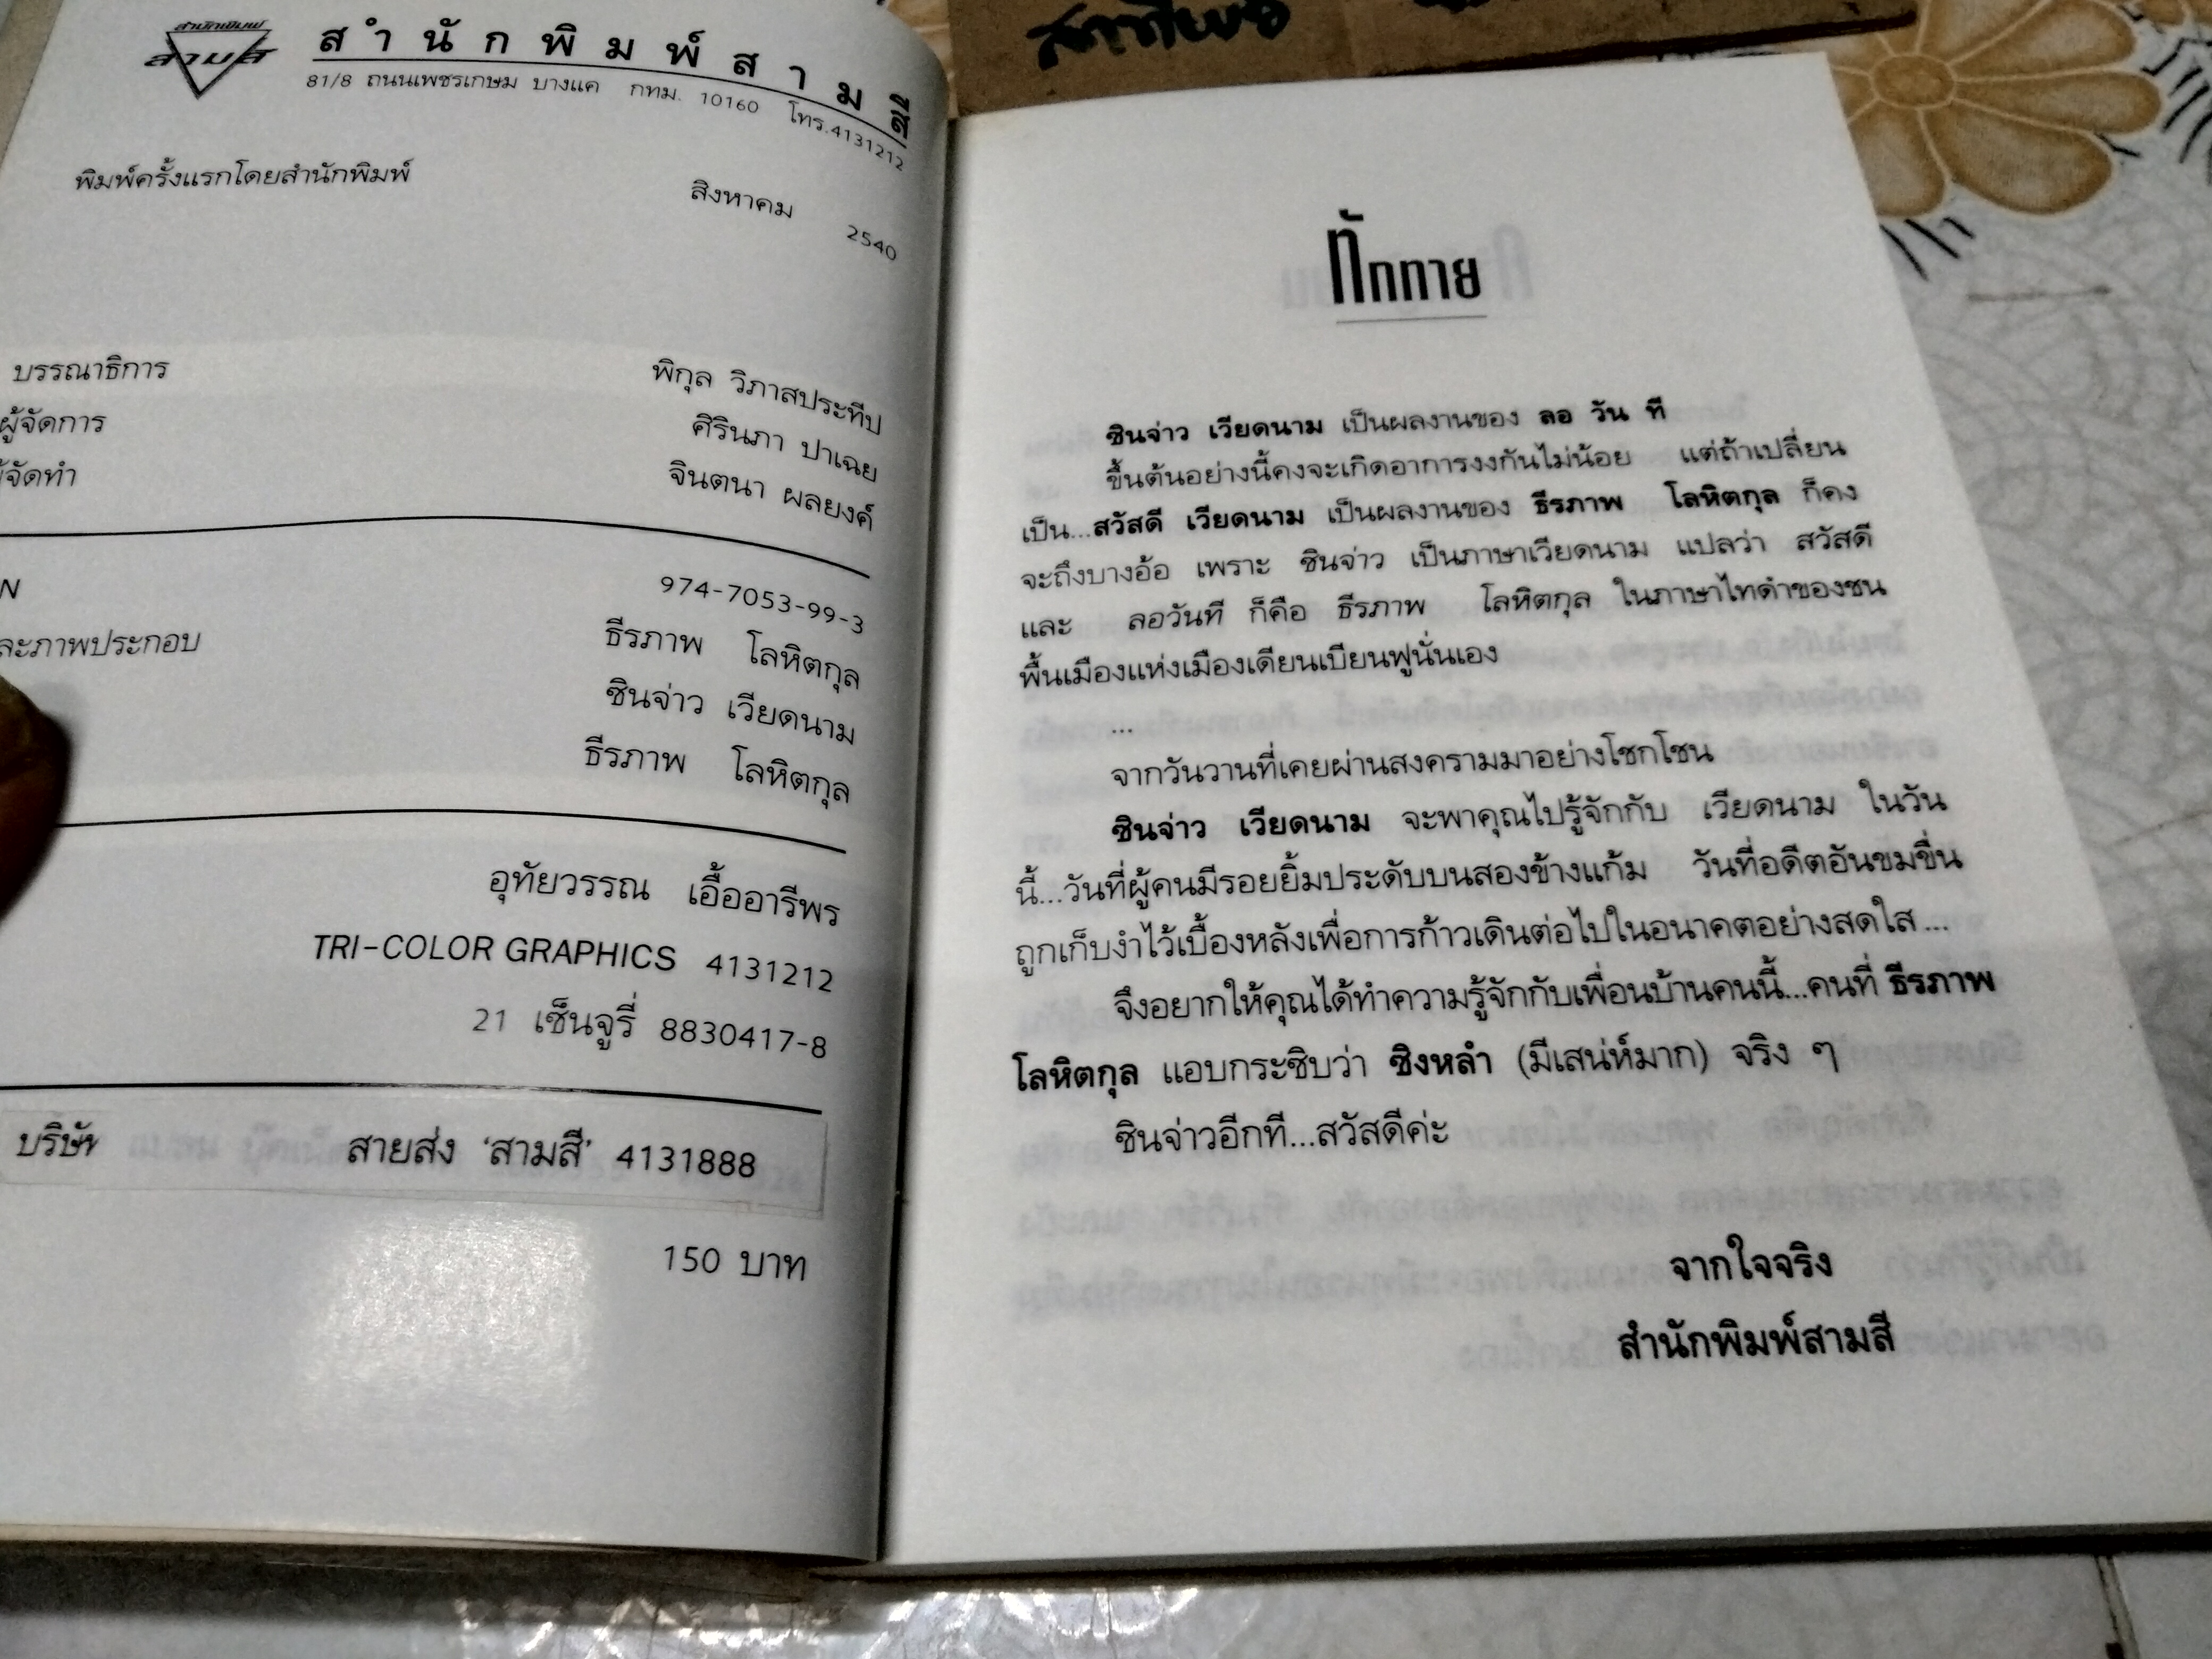 สำนักพิมพ์
สามสี
สำนักพิมพ์สามสี
81/8 ถนนเพชรเกษม บางแค กทม. 10160 โทร.4131212
พิมพ์ครั้งแรกโดยสำนักพิมพ์ สิงหาคม 2540
บรรณาธิการ พิกุล วิภาสประทีป
ผู้จัดการ ศิรินภา ปาเฉย
จัดทำ จินตนา ผลยงค์
974-7053-99-3
ธีรภาพ โลหิตกุล
ละภาพประกอบ
ซินจ่าว เวียดนาม
ธีรภาพ โลหิตกุล
อุทัยวรรณ เอื้ออารีพร
TRI-COLOR GRAPHICS 4131212
21 เซ็นจูรี่ 8830417-8
บริษัท สายส่ง ‘สามสี’ 4131888
150 บาท
ทักทาย
ซินจ่าว เวียดนาม เป็นผลงานของ ลอ วัน ที
ขึ้นต้นอย่างนี้คงจะเกิดอาการงงกันไม่น้อย แต่ถ้าเปลี่ยน
เป็น...สวัสดี เวียดนาม เป็นผลงานของ ธีรภาพ โลหิตกุล ก็คง
จะถึงบางอ้อ เพราะ ซินจ่าว เป็นภาษาเวียดนาม แปลว่า สวัสดี
และ ลอวันที ก็คือ ธีรภาพ โลหิตกุล ในภาษาไทดำของชน
พื้นเมืองแห่งเมืองเดียนเบียนฟูนั่นเอง
...
จากวันวานที่เคยผ่านสงครามมาอย่างโชกโชน
ซินจ่าว เวียดนาม จะพาคุณไปรู้จักกับ เวียดนาม ในวัน
นี้...วันที่ผู้คนมีรอยยิ้มประดับบนสองข้างแก้ม วันที่อดีตอันขมขื่น
ถูกเก็บงำไว้เบื้องหลังเพื่อการก้าวเดินต่อไปในอนาคตอย่างสดใส...
จึงอยากให้คุณได้ทำความรู้จักกับเพื่อนบ้านคนนี้...คนที่ ธีรภาพ
โลหิตกุล แอบกระซิบว่า ซิงหลำ (มีเสน่ห์มาก) จริง ๆ
ซินจ่าวอีกที...สวัสดีค่ะ
จากใจจริง
สำนักพิมพ์สามสี